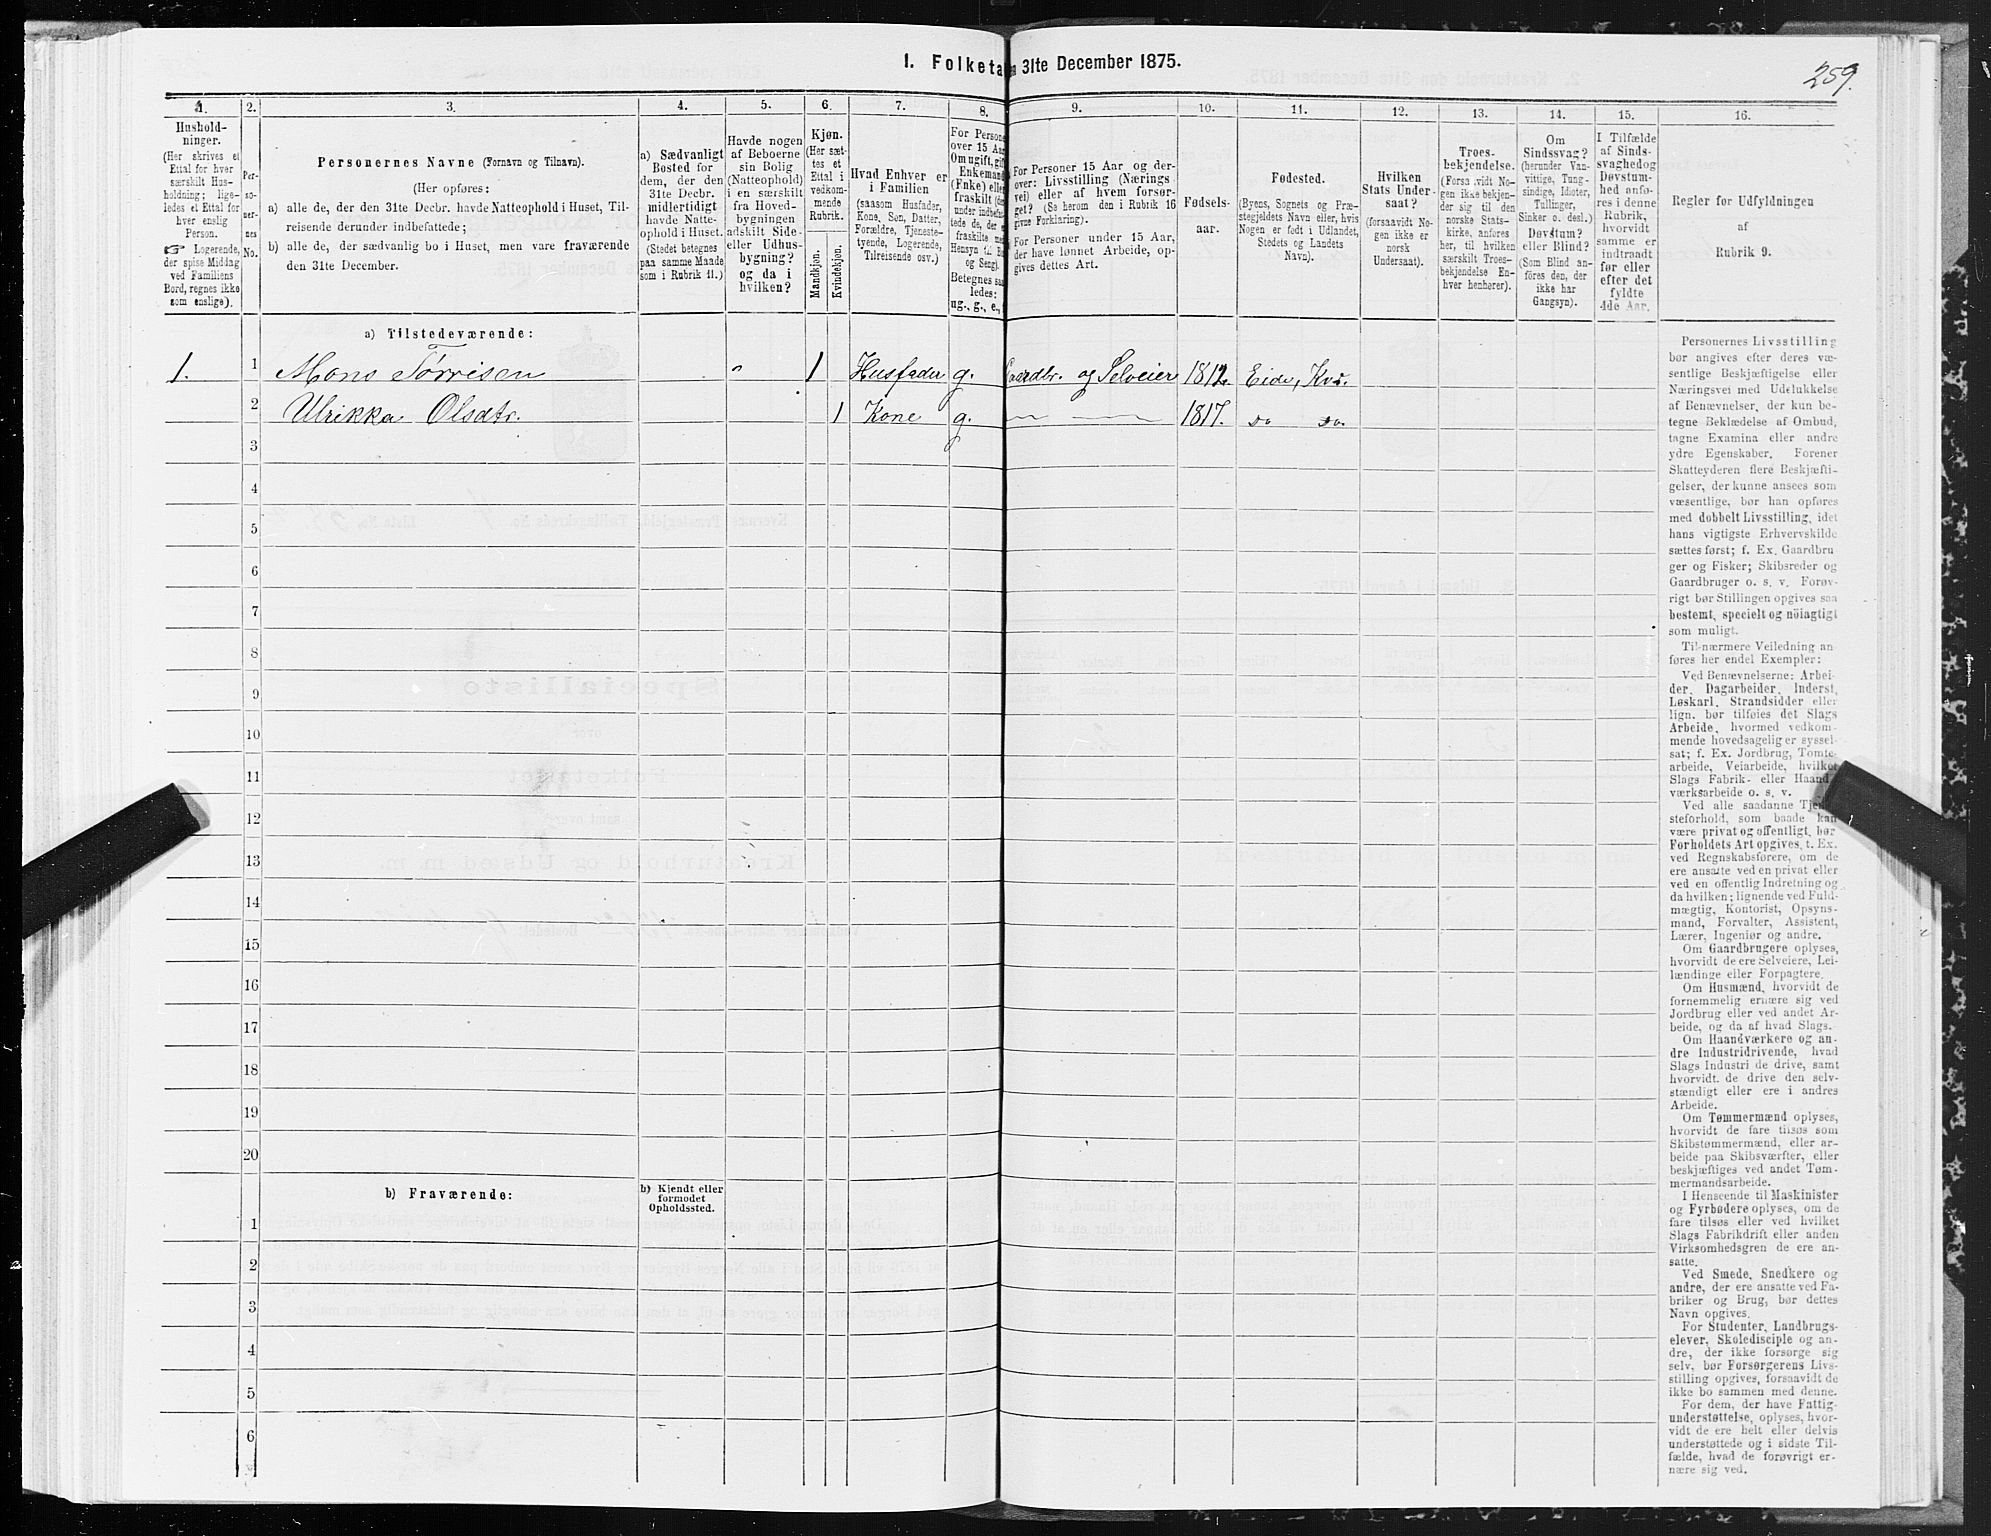 1. Folketa n 31te December 1875.
259.
1. 2. 3. 4. 5. 6. 7. 8. 9. 10. 11. 12. 13. 14. 15. 16.
Hushold-
ninger.
(Her skrives et
Ettal for hver
særskilt Hus-
holdning; lige-
ledes et Ettal for
hver enslig
Person.
☞ Logerende,
der spise Middag
ved Familiens
Bord, regnes ikke
som enslige).
Per-
so-
ner-
nes
No.
Personernes Navne (Fornavn og Tilnavn).
(Her opføres:
a) alle de, der den 31te Decbr. havde Natteophold i Huset, Til-
reisende derunder indbefattede;
b) alle de, der sædvanlig bo i Huset, men vare fraværende
den 31te December.
a) Sædvanligt
Bosted for
dem, der den
31te Decbr.
midlertidigt
havde Natte-
ophold i Huset.
(Stedet betegnes
paa samme Maade
som i Rubrik 11.)
Havde nogen
af Beboerne
sin Bolig
(Natteophold)
i en særskilt
fra Hoved-
bygningen
adskilt Side-
eller Udhus-
bygning?
og da i
hvilken?
Kjøn.
(Her sæt-
tes et
Ettal i
vedkom-
mende
Rubrik.
Mandkjøn.
Kvindekjøn.
Hvad Enhver er
i Familien
(saasom Husfader,
Kone, Søn, Datter,
Forældre, Tjeneste-
tyende, Logerende,
Tilreisende osv.)
For Persone
over 15 Aar
Om ugift, gift
Enkemand
(Enke) eller
fraskilt
under indbefat-
tede de, der ere
fraskilte
Hensyn
og Seng).
Betegnes saa
ledes:
ug., g., e.,
For Personer 15 Aar og der-
over: Livsstilling (Nærings
vei) eller af hvem forsør-
get? (Se herom den i Rubrik 16
givne Forklaring).
For Personer under 15 Aar,
der have lønnet Arbeide, op-
gives dettes Art.
Fødsels-
aar.
Fødested.
(Byens, Sognets og Præ-
stegjeldets Navn eller, hvis
Nogen er født i Udlandet,
Stedets og Landets
Navn).
Hvilken
Stats Under-
saat?
(forsaavidt No-
gen ikke er
norsk
Undersaat).
Troes-
bekjendelse.
(Forsa vidt No-
gen ikke bekjen-
der sig til den
norske Stats-
kirke, anføres
her, til hvilken
særskilt Troes-
bekjendelse En-
hver henhører).
Om
Sindssvag?
(herunder Van-
vittige, Tung-
sindige, Idioter,
Tullinger,
Sinker o. desl.)
Døvstum?
eller Blind?
(Som Blind an-
føres den, der
ikke har
Gangsyn).
I Tilfælde
af Sinds-
svaghed og
Døvstum-
hed anfø-
res i denne
Rubrik,
hvorvidt
samme er
indtraadt
før eller
efter det
fyldte
4de Aar.
Regler for Udfyldningen
af
Rubrik 9.
a) Tilstedeværende:
1. 1 Mons Tørrisen " 1 Husfader g. Gaardbr. og Selveier 1812. Eide, Kvs.
2 Ulrikka Olsdtr. 1 Kone g. — — 1817. do do.
3
4
5
6
7
8
9
10
11
12
13
14
15
16
17
18
19
20
b) Fraværende:
b) Kjendt eller
formodet
Opholdssted.
1
2
3
4
5
6
Personernes Livsstilling
bør angives efter deres væ-
sentlige Beskjæftigelse eller
Næringsvei med Udelukkelse
af Benævnelser, der kun be-
tegne Beklædelse af Ombud,
tagne Examina eller andre
ydre Egenskaber. Forener
Skatteyderen flere Beskjæfti-
gelser, der kunne ansees som
væsentlige, bør han opføres
med dobbelt Livsstilling, idet
hans vigtigste Erhvervskilde
sættes først; f. Ex. Gaardbru
ger og Fisker; Skibsreder og
Gaardbruger o. s. v. Forøv-
rigt bør Stillingen opgives saa
bestemt, specielt og nöiagtigt
som muligt.
Til nærmere Veiledning an-
føres her endel Exempler:
Ved Benævnelserne: Arbei-
der, Dagarbeider, Inderst,
Løskarl, Strandsidder eller
lign. bør tilføies det Slags
Arbeide, hvormed vedkom-
mende hovedsagelig er syssel-
sat; f. Ex. Jordbrug, Tomte-
arbeide, Veiarbeide, hvilket
Slags Fabrik- eller Haand-
værksarbeide o. s. v.
Ved alle saadanne Tjene-
steforhold, som baade kan
være privat og offentligt, bør
Forholdets Art opgives, t. Ex.
ved Regnskabsførere, om de
ere ansatte ved en privat eller
ved en offentlig Indretning og
da hvilken; lignende ved Fuld-
mægtig, Kontorist, Opsyns-
mand, Forvalter, Assistent,
Lærer, Ingeniør og andre.
Om Gaardbrugere oplyses,
hvorvidt de ere Selveiere, Lei-
lændinge eller Forpagtere.
Om Husmænd, hvorvidt de
fornemmelig ernære sig ved
Jordbrug eller ved andet Ar-
beide, og da af hvad Slags.
Om Haandværkere og an-
dre Industridrivende, hvad
Slags Industri de drive, samt
hvorvidt de drive den selv-
stændigt eller ere i andres
Arbeide.
Om Tømmermænd oplyses,
hvorvidt de fare tilsøs som
Skibstømmermænd, eller ar-
beide paa Skibsværfter, eller
beskjæftiges ved andet Tøm-
mermandsarbeide.
I Henseende til Maskinister
og Fyrbødere oplyses, om de
fare tilsøs eller ved hvilket
Slags Fabrikdrift eller anden
Virksomhedsgren de ere an-
satte.
Ved Smede, Snedkere og
andre, der ere ansatte ved Fa-
briker og Brug, bør dettes
Navn opgives.
For Studenter, Landbrugs-
elever, Skoledisciple og an-
dre, der ikke forsørge sig
selv, bør Forsørgerens Livs-
stilling opgives, forsaavidt de
ikke bo sammen med denne.
For dem, der have Fattig-
understøttelse, oplyses, hvor-
vidt de ere helt eller delvis
understøttede og i sidste Til-
fælde, hvad de forøvrigt er-
nære sig ved.